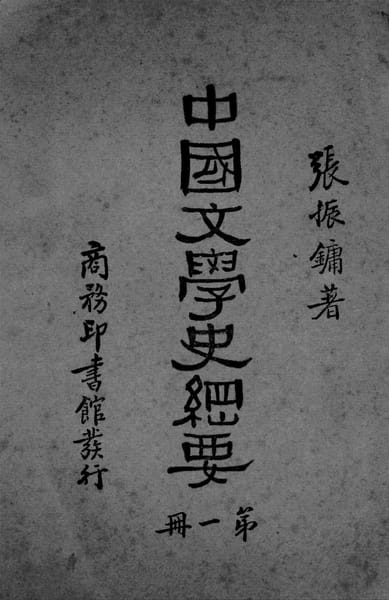 張振鏞著
中國文學史綱要
第一冊
商務印書館發行